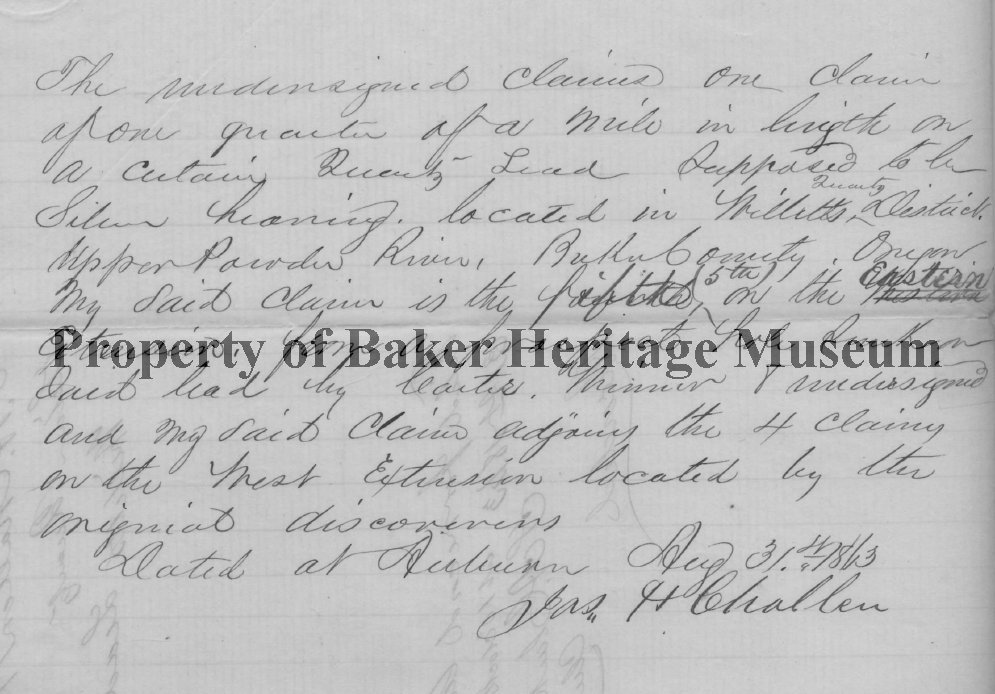 The undersigned claims one claim
of one quarter of a mile in length on
a certain Quartz Lead Supposed to be
Silver bearing. located in Willetts Quartz District.
Upper Powder River, Baker County, Oregon
My Said Claim is the fifth (5th) on the Eastern
Extension, from a prospect Hole Sunk on
Said lead by Carter, & undersigned
and My Said Claim adjoins the 4 claims
on the West Extension located by the
original discoverers
Dated at Auburn Aug 31. 1863
Jas. H Challen
Property of Baker Heritage Museum